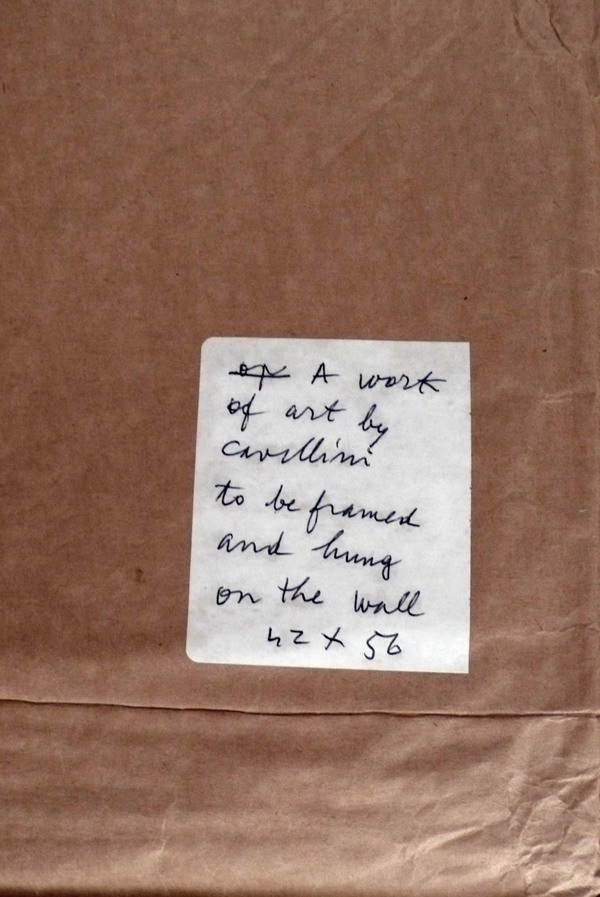 A work
of art by
cavellini
to be framed
and hung
on the wall
42 x 56